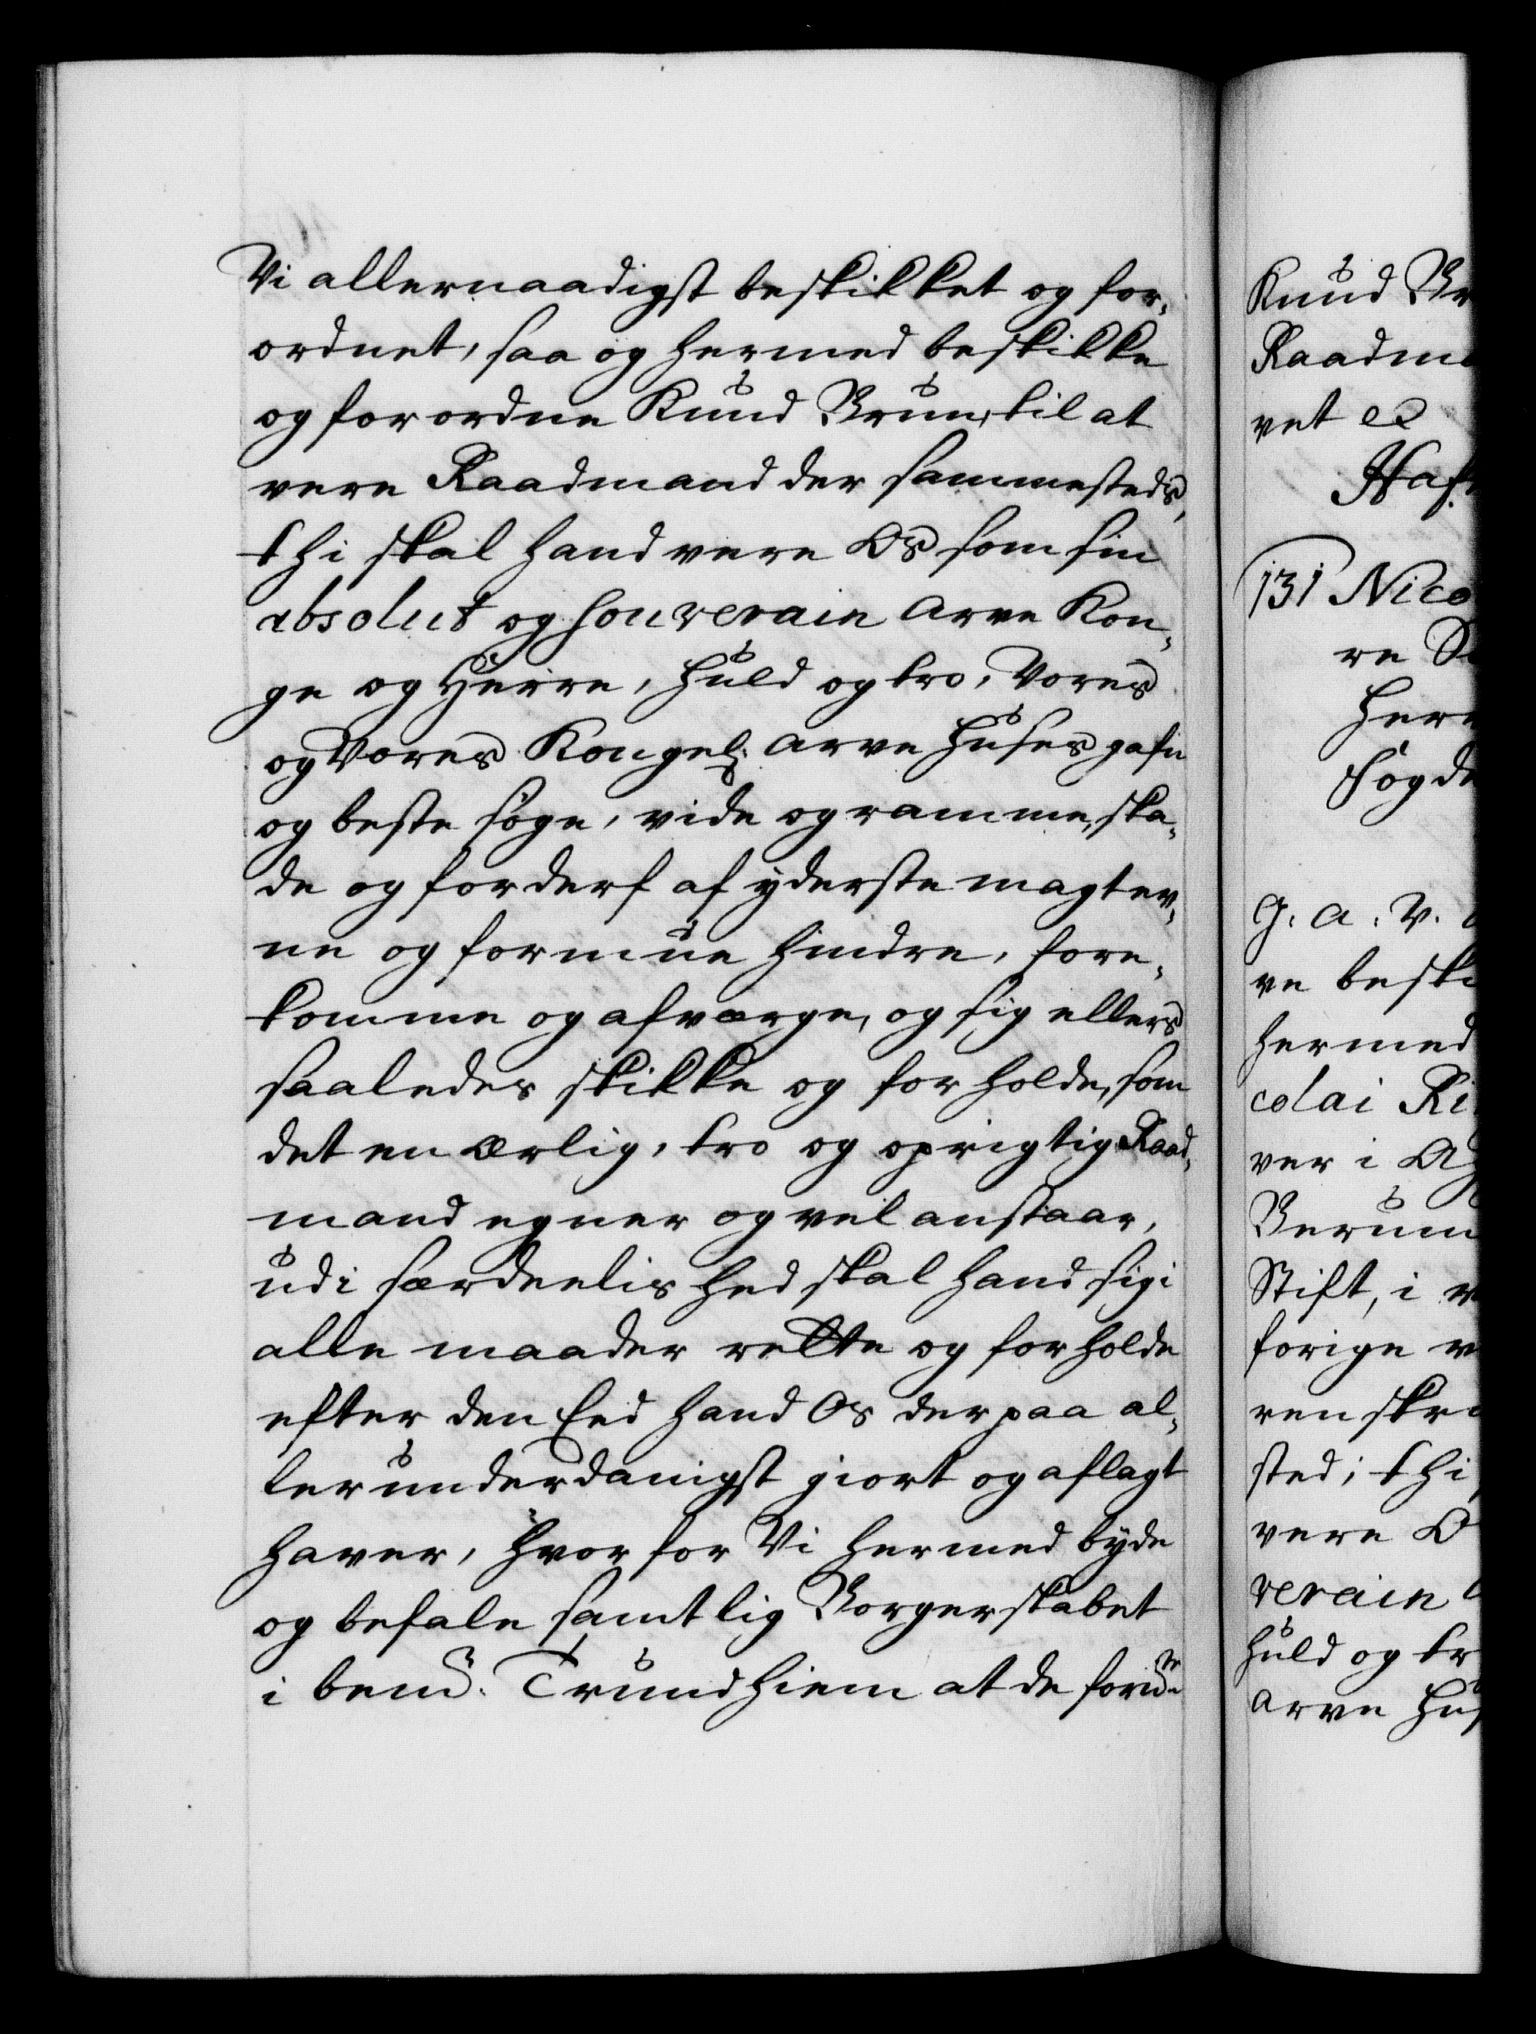 Vi allernaadigst beskikket og for-
ordnet, saa og hermed beskikke
og forordne Knud Brun, til at
vere Raadmand der sammesteds,
thi skal hand vere Os som sin
absolut og souverain Arve Kon-
ge og Herre, huld og tro, Vores
og Vores Kongel: Arve Huses gafn
og beste søge, vide og ramme, ska-
de og forderf af yderste magt ev-
ne og formue hindre, fore-
komme og afværge, og sig ellers
saaledes skikke og forholde, som
det en ærlig, tro og oprigtig Raad-
mand egner og vel anstaar,
udi særdeelished skal hand sig i
alle maader rette og forholde
efter den Eed hand Os derpaa al-
lerunderdanigst giort og aflagt
haver, hvorfor Vi hermed byde
og befale samtlig Borgerskabet
i bemd. Trundhiem at de
Knud Br
Raadma
vet &
Hafn
131 Nico
re
Herr
fogde
G. A. V.
ve besk
hermed
colai Ri
ver i
Berum
Stift, i
forige
ren skr
sted; thi
vere O
verain
huld og tr
Arve Hus